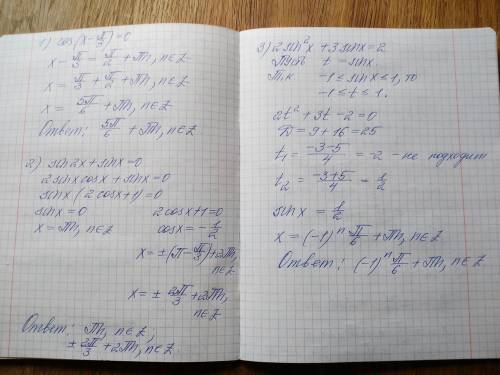 1) cos(x - π/3) = 0
x - π/3 = π/2 + πn, n∈Z
x = π/3 + π/2 + πn, n∈Z
x = 5π/6 + πn, n∈Z
Ответ: 5π/6 + πn, n∈Z
2) sin2x + sinx = 0
2sinxcosx + sinx = 0
sinx(2cosx + 1) = 0
sinx = 0 2cosx + 1 = 0
x = πn, n∈Z cosx = -1/2
x = ±(π - π/3) + 2πn,
n∈Z
x = ± 2π/3 + 2πn,
n∈Z
Ответ: πn, n∈Z;
± 2π/3 + 2πn, n∈Z.
3) 2sin²x + 3sinx = 2
Пусть t = sinx.
Т.к -1 ≤ sinx ≤ 1, то
-1 ≤ t ≤ 1.
2t² + 3t - 2 = 0
D = 9 + 16 = 25
t₁ = (-3-5)/4 = -2 - не подходит
t₂ = (-3+5)/4 = 1/2
sinx = 1/2
x = (-1)ⁿ π/6 + πn, n∈Z
Ответ: (-1)ⁿ π/6 + πn, n∈Z